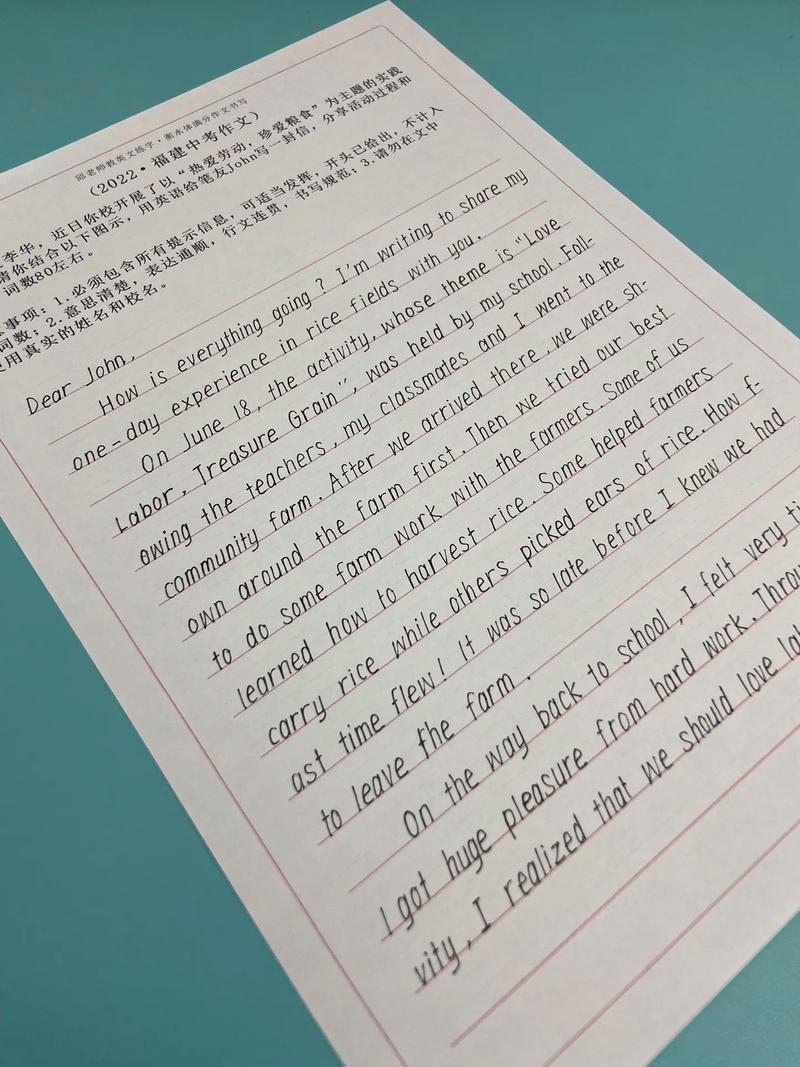 邱老师教英文练字·衡水体满分作文书写
(2022·福建中考作文)
李华，近日你校开展了以“热爱劳动，珍爱粮食”为主题的实践
请你结合以下图示，用英语给笔友John写一封信，分享活动过程和
词数80左右。
事项：1.必须包含所有提示信息，可适当发挥，开头已给出，不计入
词数；2.意思清楚，表达通顺，行文连贯，书写规范；3.请勿在文中
使用真实的姓名和校名。
Dear John,
How is everything going? I'm writing to share my
one-day experience in rice fields with you.
On June 18, the activity, whose theme is "Love
Labor, Treasure Grain", was held by my school. Foll-
owing the teachers, my classmates and I went to the
community farm. After we arrived there, we were sh-
own around the farm first. Then we tried our best
to do some farm work with the farmers. Some of us
learned how to harvest rice. Some helped farmers
carry rice while others picked ears of rice. How f-
ast time flew! It was so late before I knew we had
to leave the farm.
On the way back to school, I felt very
I got huge pleasure from hard work.
vity, I realized that we should love